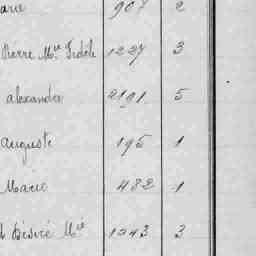 arie 907 2
Pierre Mie Fidèle 1227 3
alexandre 2191 5
auguste 195 1
Marie 482 1
Désiré Mie 1043 3